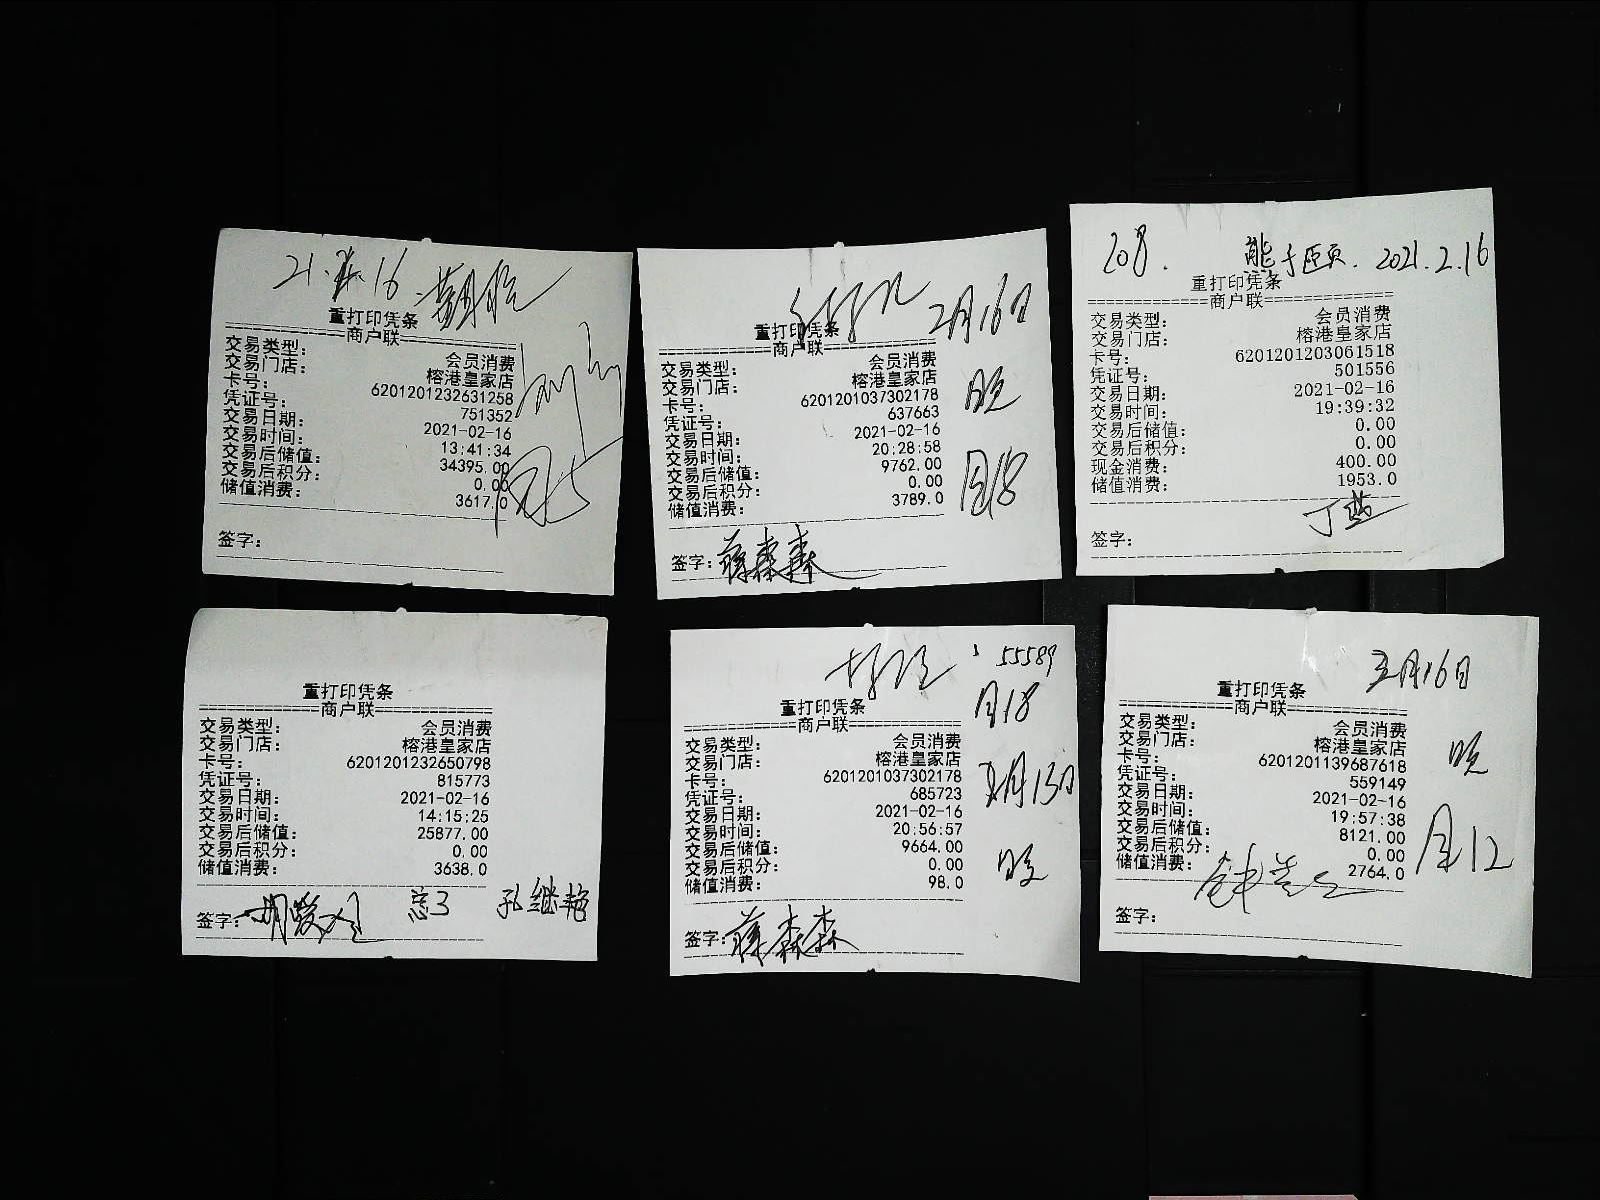 21. 16
重打印凭条
商户联
交易类型: 会员消费
交易门店: 榕港皇家店
卡号: 6201201232631258
凭证号: 751352
交易日期: 2021-02-16
交易时间: 13:41:34
交易后储值: 34395.00
交易后积分: 0.00
储值消费: 3617.0
签字:
2月16日
重打印凭条
商户联
交易类型: 会员消费
交易门店: 榕港皇家店
卡号: 6201201037302178
凭证号: 637663
交易日期: 2021-02-16
交易时间: 20:28:58
交易后储值: 9762.00
交易后积分: 0.00
储值消费: 3789.0
晚
月18
签字: 蒋森森
208. 熊于颐. 2021.2.16
重打印凭条
商户联
交易类型: 会员消费
交易门店: 榕港皇家店
卡号: 6201201203061518
凭证号: 501556
交易日期: 2021-02-16
交易时间: 19:39:32
交易后储值: 0.00
交易后积分: 0.00
现金消费: 400.00
储值消费: 1953.0
丁蓝
签字:
重打印凭条
商户联
交易类型: 会员消费
交易门店: 榕港皇家店
卡号: 6201201232650798
凭证号: 815773
交易日期: 2021-02-16
交易时间: 14:15:25
交易后储值: 25877.00
交易后积分: 0.00
储值消费: 3638.0
签字: 孔继艳
55589
月18
重打印凭条
商户联
交易类型: 会员消费
交易门店: 榕港皇家店
卡号: 6201201037302178
凭证号: 685723
交易日期: 2021-02-16
交易时间: 20:56:57
交易后储值: 9664.00
交易后积分: 0.00
储值消费: 98.0
晚
签字: 蒋森森
2月16日
重打印凭条
商户联
交易类型: 会员消费
交易门店: 榕港皇家店
卡号: 6201201139687618
凭证号: 559149
交易日期: 2021-02-16
交易时间: 19:57:38
交易后储值: 8121.00
交易后积分: 0.00
储值消费: 2764.0
晚
月12
签字: